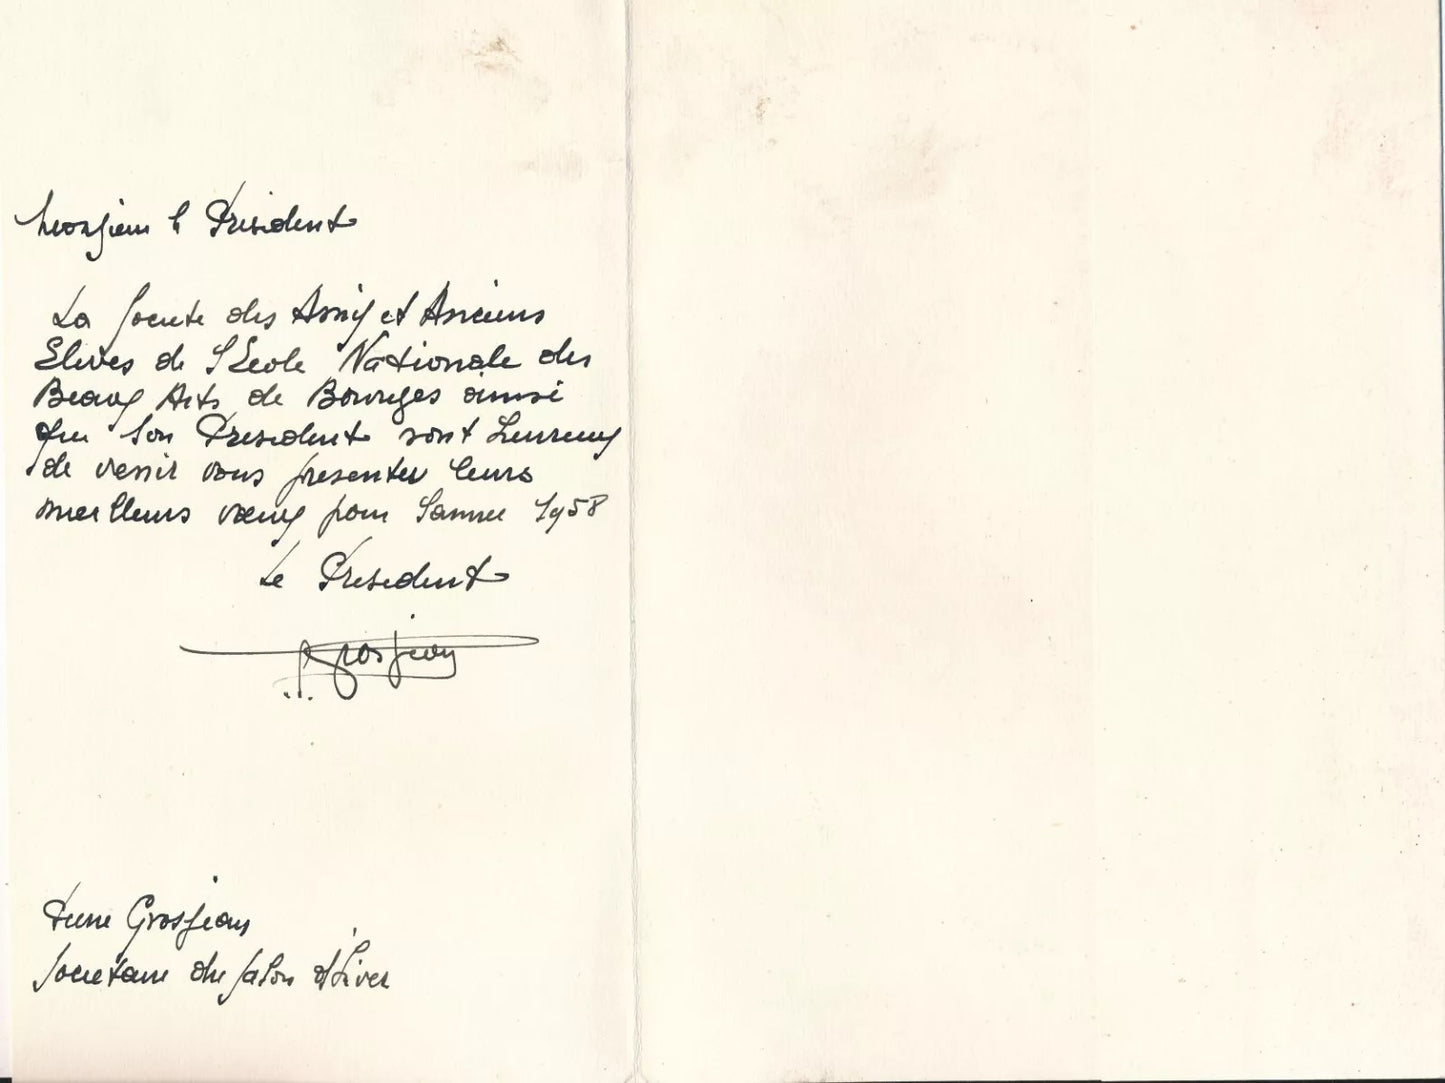 Monsieur le President
La Societe des Amis et Anciens
Eleves de l'Ecole Nationale des
Beaux Arts de Bourges ainsi
que son President sont heureux
de venir vous presenter leurs
meilleurs vœux pour l'annee 1958
Le President
Grosjean
Grosjean
Societaire du Salon d'Hiver